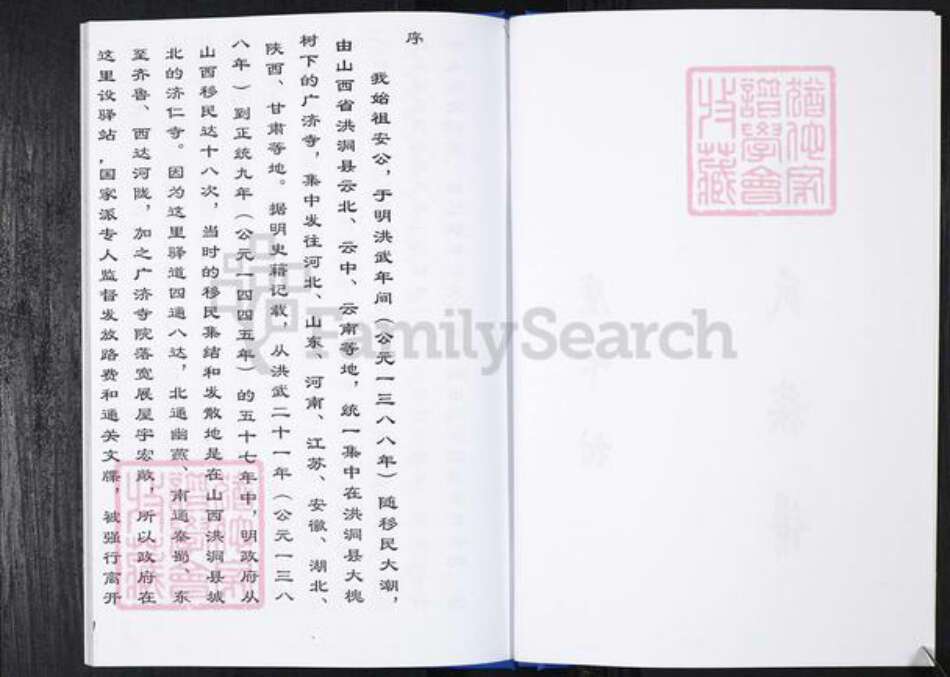 序
我始祖安公，于明洪武年间（公元一三八八年）随移民大潮，
由山西省洪洞县云北、云中、云南等地，统一集中在洪洞县大槐
树下的广济寺，集中发往河北、山东、河南、江苏、安徽、湖北、
陕西、甘肃等地。据明史籍记载，从洪武二十一年（公元一三八
八年）到正统九年（公元一四四五年）的五十七年中，明政府从
山西移民达十八次，当时的移民集结和发散地是在山西洪洞县城
北的济仁寺。因为这里驿道四通八达，北通幽燕、南通秦蜀、东
至齐鲁、西达河陇，加之广济寺院落宽展屋宇宏敞，所以政府在
这里设驿站，国家派专人监督发放路费和通关文牒，被强行离开
FamilySearch
猶他家
譜學會
收藏
猶他家
譜學會
收藏